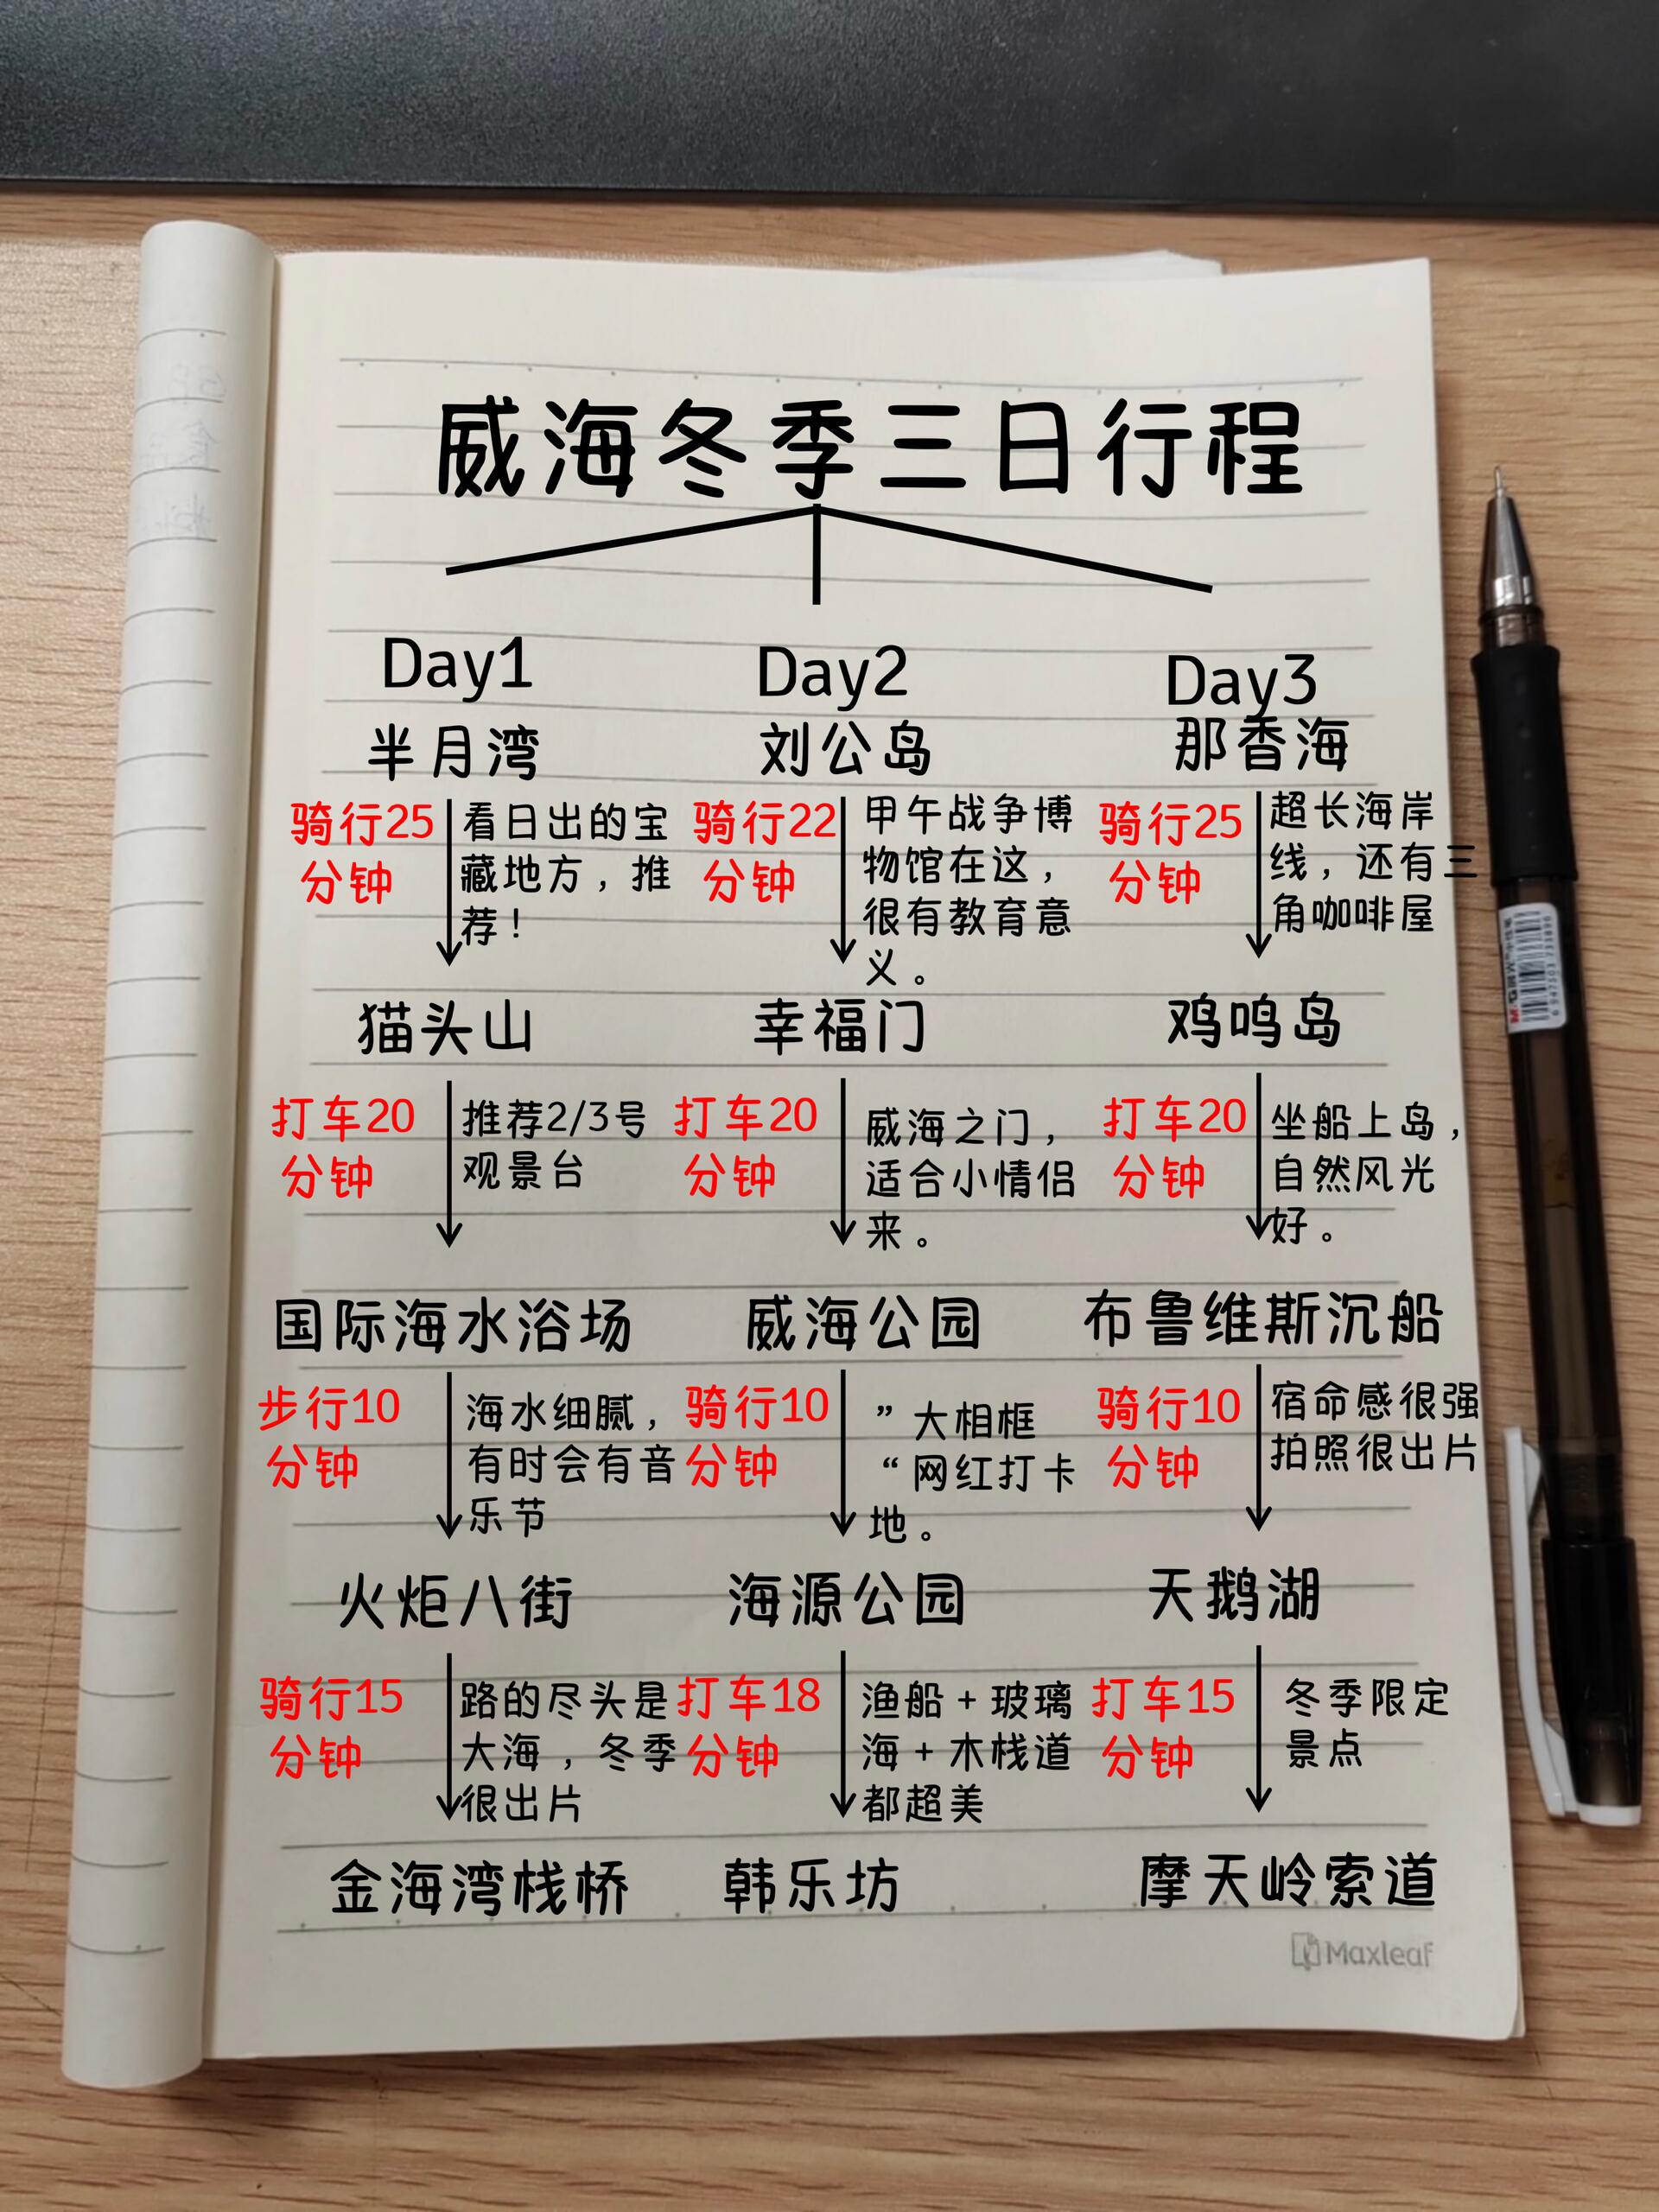 威海冬季三日行程
Day1
半月湾
骑行25
分钟
看日出的宝
藏地方，推
荐！
猫头山
打车20
分钟
推荐2/3号
观景台
国际海水浴场
步行10
分钟
海水细腻，
有时会有音
乐节
火炬八街
骑行15
分钟
路的尽头是
大海，冬季
很出片
金海湾栈桥
Day2
刘公岛
骑行22
分钟
甲午战争博
物馆在这，
很有教育意
义。
幸福门
打车20
分钟
威海之门，
适合小情侣
来。
威海公园
骑行10
分钟
”大相框
“网红打卡
地。
海源公园
打车18
分钟
渔船+玻璃
海+木栈道
都超美
韩乐坊
Day3
那香海
骑行25
分钟
超长海岸
线，还有三
角咖啡屋
鸡鸣岛
打车20
分钟
坐船上岛，
自然风光
好。
布鲁维斯沉船
骑行10
分钟
宿命感很强
拍照很出片
天鹅湖
打车15
分钟
冬季限定
景点
摩天岭索道
Maxleaf